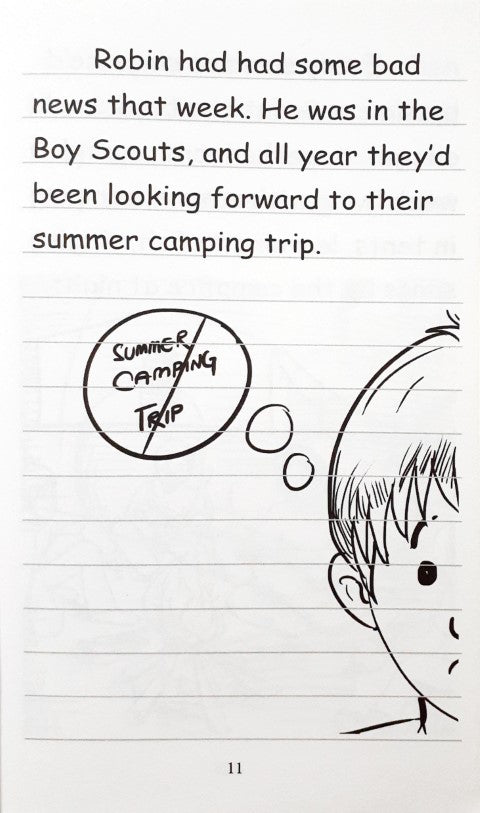 Robin had had some bad
news that week. He was in the
Boy Scouts, and all year they'd
been looking forward to their
summer camping trip.
SUMMER
CAMPING
TRIP
11